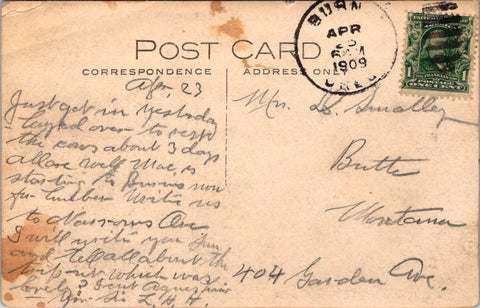 POST CARD
CORRESPONDENCE
ADDRESS ONLY
BURN
APR
25
6 AM
1909
OREG
Apr. 23
Just got in yesterday
layed over to rest
the cows about 3 days
all are well Mac, is
starting to Burns now
for lumber Write us
to Narrows Ore
I will write you Jun
and tell all about the
which was
lovely I sent Agnes
Your Sis L. H. H.
Mrs. D. Smalley
Butte
Montana
404 Garden Ave.